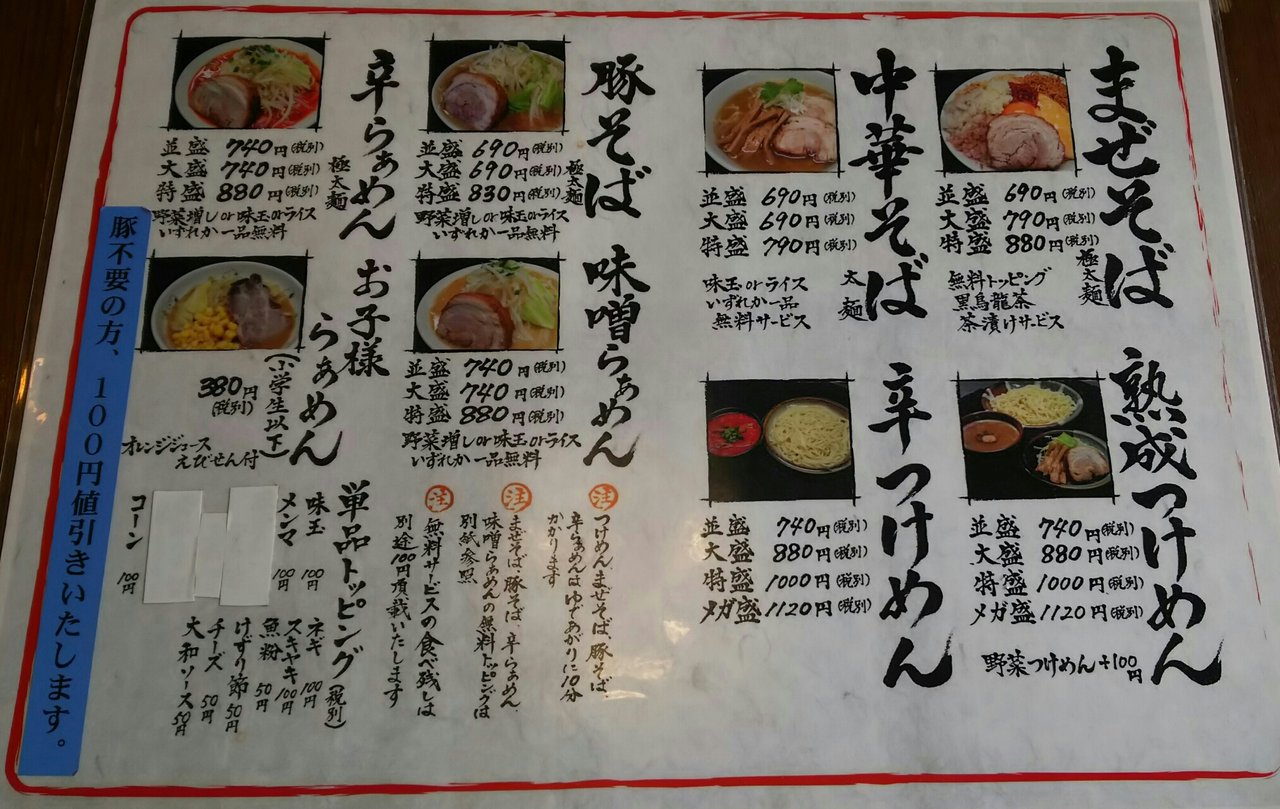 まぜそば
極太麺
並盛 690円(税別)
大盛 790円(税別)
特盛 880円(税別)
無料トッピング
黒烏龍茶
茶漬けサービス
中華そば
太麺
並盛 690円(税別)
大盛 690円(税別)
特盛 790円(税別)
味玉orライス
いずれか一品
無料サービス
熟成つけめん
並盛 740円(税別)
大盛 880円(税別)
特盛 1000円(税別)
メガ盛 1120円(税別)
野菜つけめん+100円
辛つけめん
並盛 740円(税別)
大盛 880円(税別)
特盛 1000円(税別)
メガ盛 1120円(税別)
豚そば
極太麺
並盛 690円(税別)
大盛 690円(税別)
特盛 830円(税別)
野菜増しor味玉orライス
いずれか一品無料
辛らぁめん
極太麺
並盛 740円(税別)
大盛 740円(税別)
特盛 880円(税別)
野菜増しor味玉orライス
いずれか一品無料
味噌らぁめん
並盛 740円(税別)
大盛 740円(税別)
特盛 880円(税別)
野菜増しor味玉orライス
いずれか一品無料
お子様
らぁめん
(小学生以下)
380円
(税別)
オレンジジュース
えびせん付
注
つけめん、まぜそば、豚そば、
辛らぁめんはゆであがりに10分
かかります
注
まぜそば、豚そば、辛らぁめん、
味噌らぁめんの無料トッピングは
別紙参照
注
無料サービスの食べ残しは
別途100円頂戴いたします
単品トッピング(税別)
味玉 100円
メンマ 100円
コーン 100円
ネギ 100円
スキヤキ 100円
魚粉 50円
けずり節 50円
チーズ 50円
大和ソース 50円
豚不要の方、100円値引きいたします。